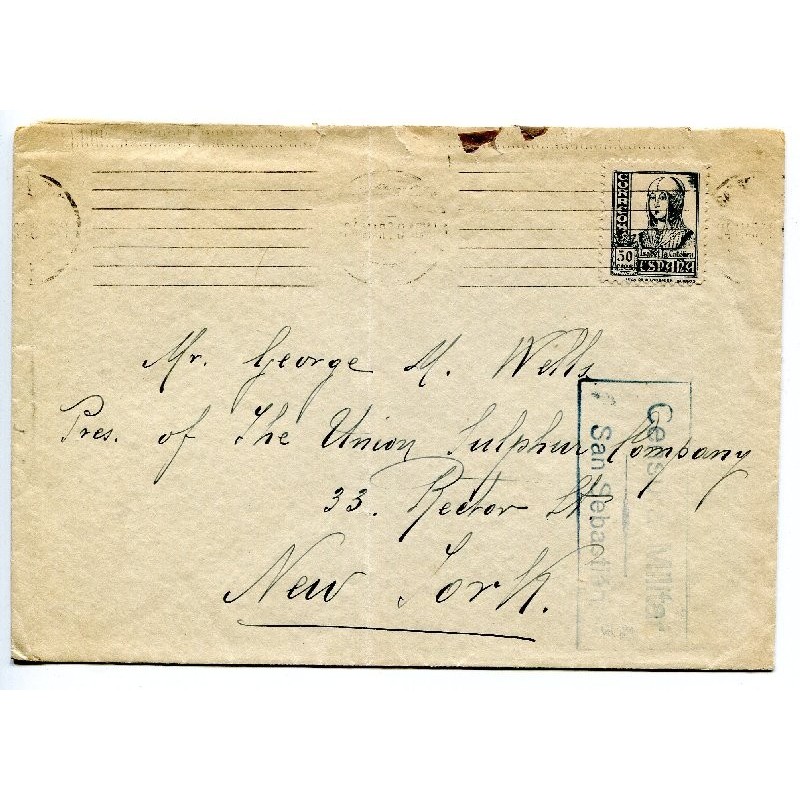 CORREOS
50
CENTS
Isabel la Católica
ESPAÑA
Mr. George M. Wells
Pres. of The Union Sulphur Company
33. Rector St.
New York.
Censura Militar
San Sebastián